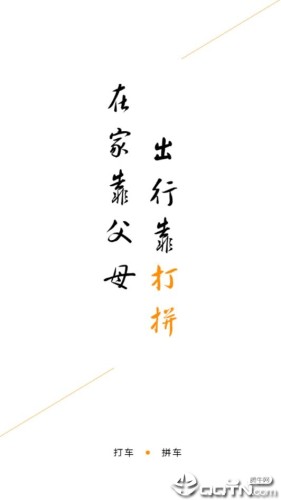 在家靠父母
出行靠打拼
打车 • 拼车